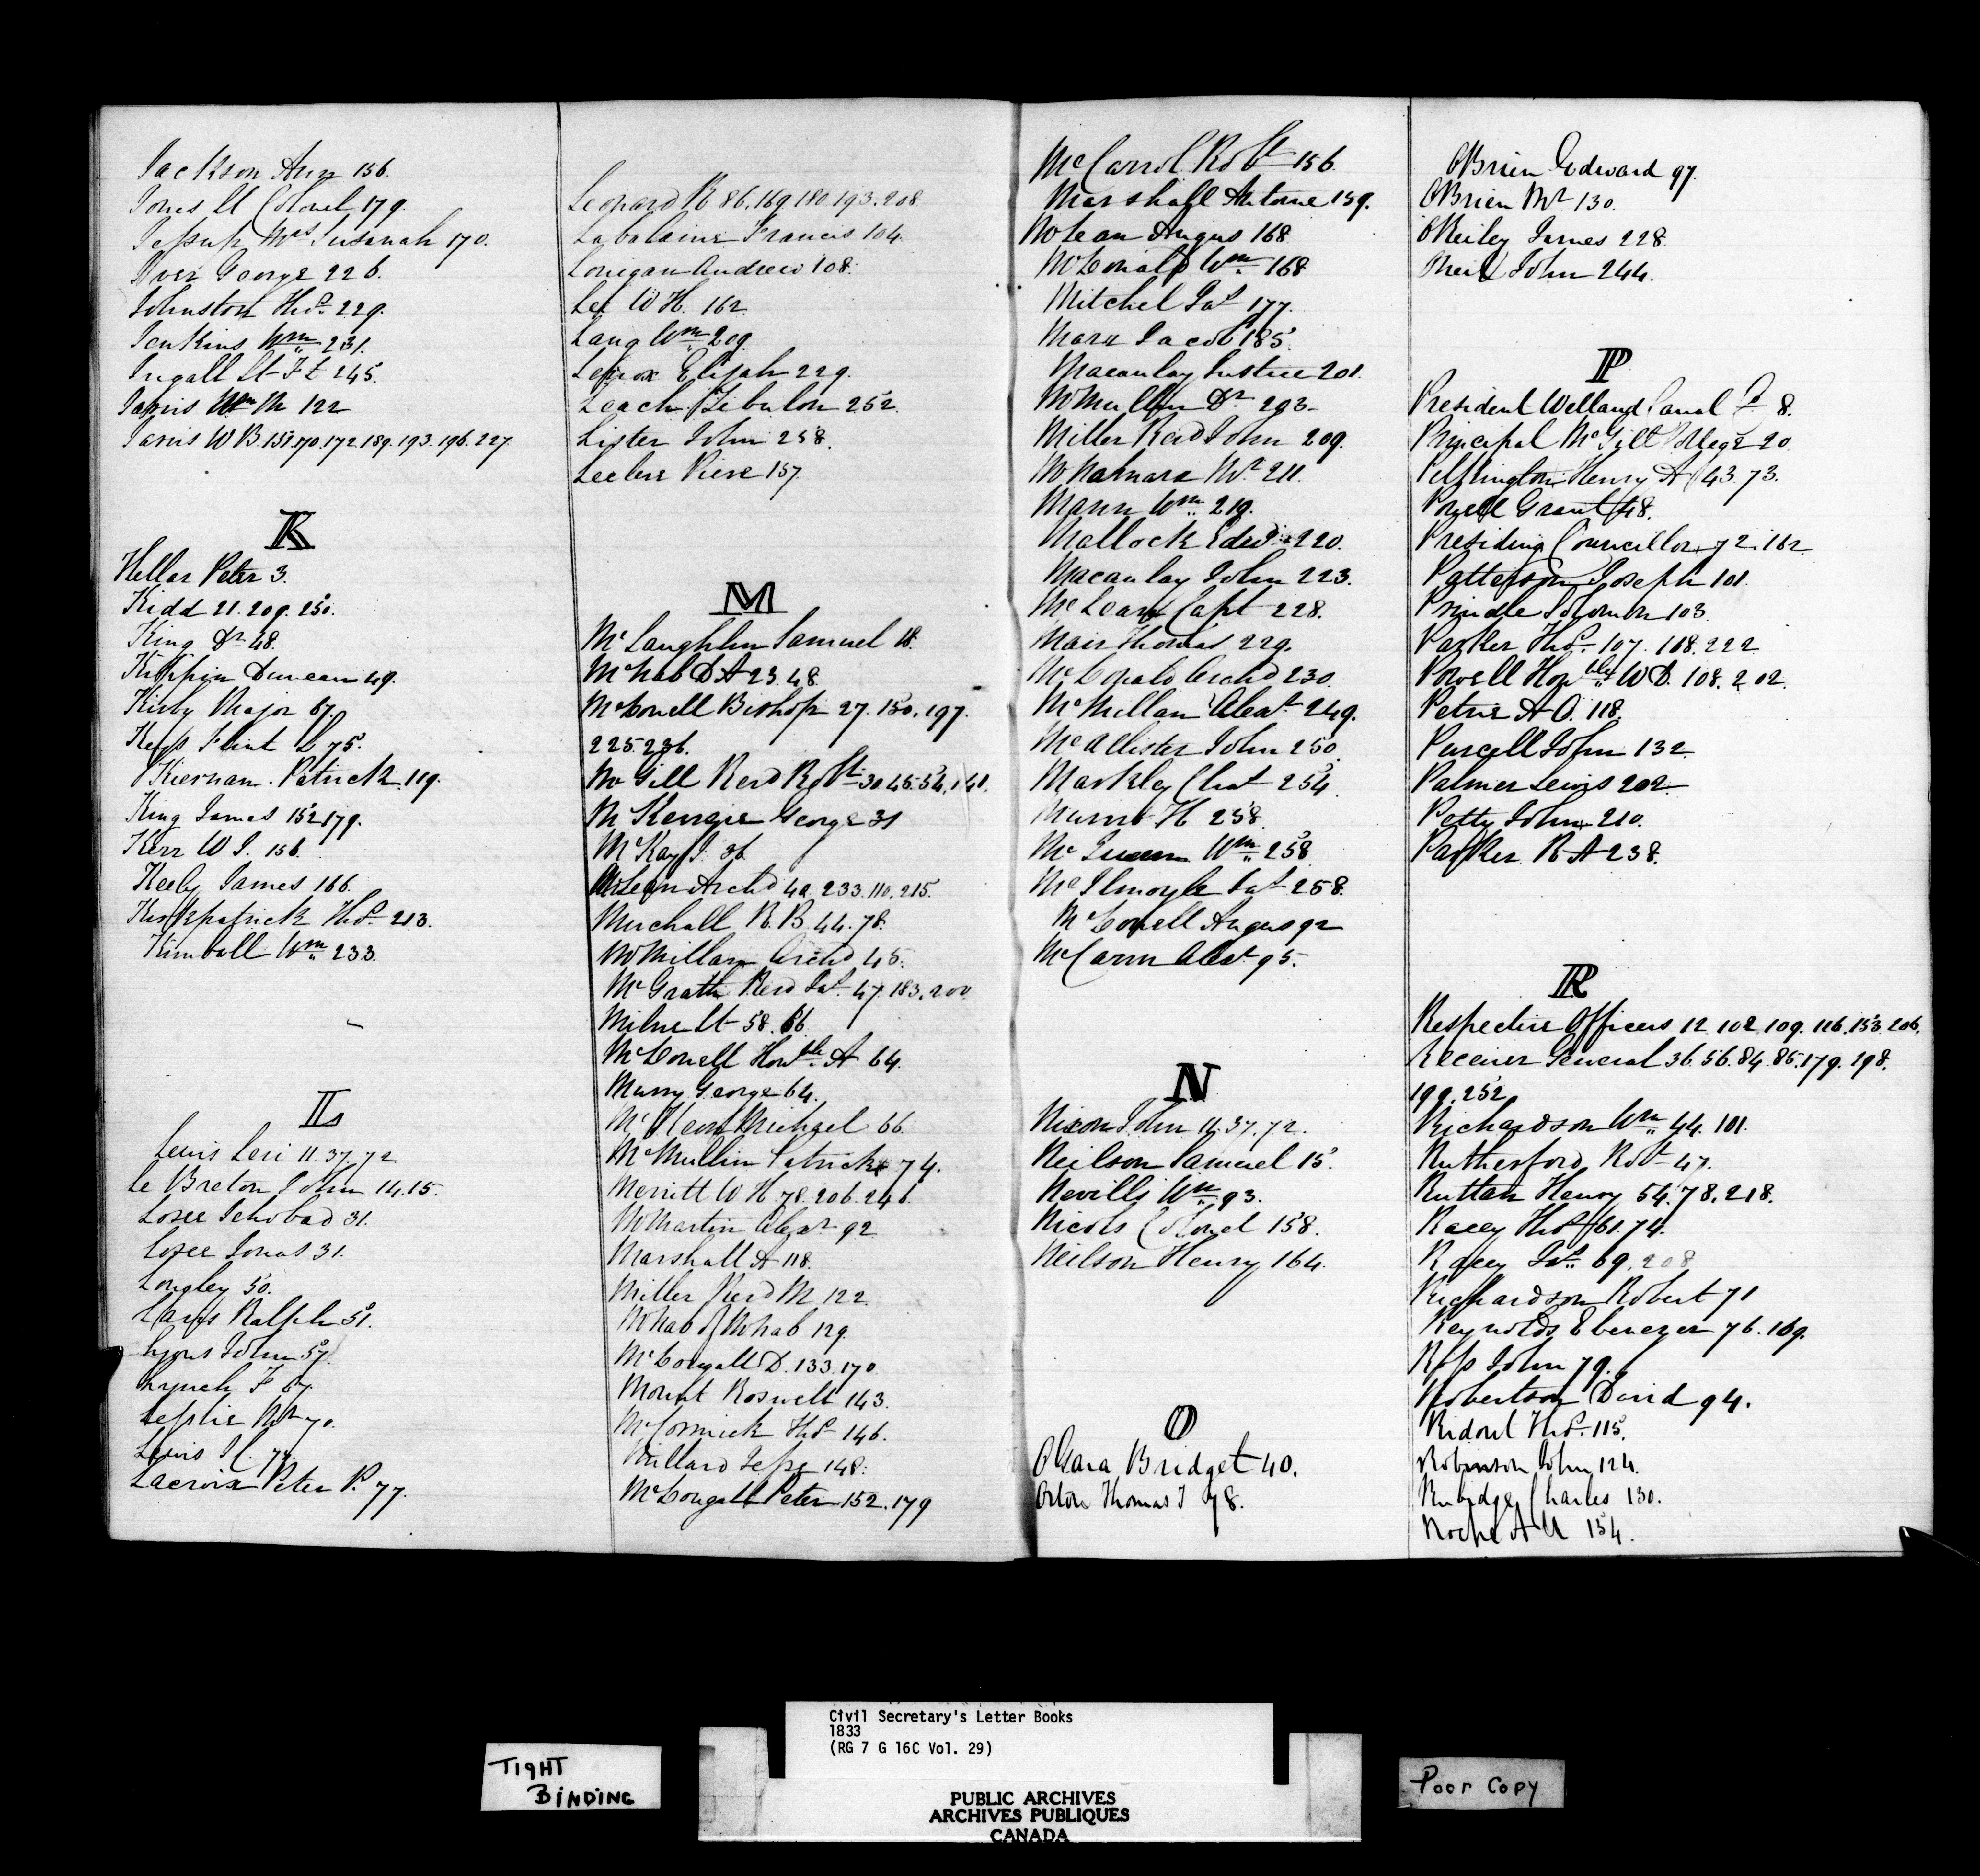 Jackson Ann 156.
Jones Lt Colonel 179.
Jessup Mrs Susanah 170.
Iver George 226.
Johnston Thos 229.
Jenkins Wm 231.
Ingall Lt F L 245.
Jarvis Wm M 122
Jarvis W B. 151.170.172.189.193.196.227.
K
Kellar Peter 3.
Kidd 21.209.250.
King Dr 48.
Duncan 49.
Kirby Major 67.
Flint L 75.
Kiernan Patrick 119.
King James 152.179.
Kerr W J. 156.
Keely James 166.
Kirkpatrick Thos 213.
Kimball Wm 233.
L
Lewis Levi 11.37.72
Le Breton John 14.15.
Losee Ichobad 31.
Losee Jonas 31.
Longley 50.
Laws Ralph 51.
Lyons John 57.
Lynch F 67.
Leslie Mr 70.
Lewis J C. 77.
Lacroix Peter P. 77.
Leonard R 86.169.180.193.208
Labalaine Francis 104.
Lonigan Andrew 108.
Lee W H. 162
Lang Wm 209.
Lennox Elijah 229.
Leach Zibulon 252.
Lister John 258.
Leclere Piere 157.
M
McLaughlin Samuel 18.
McNab D A 23.48
McDonell Bishop 27.150.197.
225.236.
McGill Revd Robt 30.45.54.141.
McKenzie George 31
McKay J. 36
McLean Archd 40.233.110.215.
Murchall R. B. 44.78.
McMillan Archd 45.
McGrath Revd Jas. 47.183.200
Milne Lt 58.66.
McDonell Honble A 64.
Murry George 64.
Michael 66
McMullin Patrick 74.
Merritt W H 78.206.246.
McMartin Alexr 92
Marshall A 118.
Miller Revd M 122.
McNab of McNab 129.
McDougall D. 133.170
Mount Roswell 143.
McCormick Thos 146.
Millard Jesse 148.
McDougall Peter 152.179
McCarrol Robt 156.
Marshall Antoine 159.
McLean Angus 168
McDonald Wm 168
Mitchel Jas 177.
Marx Jacob 185.
Macaulay Justice 201.
McMullin Dr 203
Miller Revd John 209.
McNamara Mr 211.
Mann Wm 219.
Mallock Edwd 220.
Macaulay John 223.
McLean Capt 228.
Mair Thomas 229.
McDonald Archd 230.
McMillan Alexr 249.
McAllister John 250
Markley Chas 254
H 258
McQueen Wm 258
McIlmoyle Jas 258.
McDonell Angus 92
McCann Alexr 95.
N
Nixon John 11.37.72.
Neilson Samuel 15.
Nevills Wm 93.
Nicols Colonel 158.
Neilson Henry 164.
O
OGara Bridget 40.
Orton Thomas J 78.
OBrien Edward 97.
OBrien Mr 130.
OReiley James 228
ONeil John 244.
P
President Welland Canal Co 8.
Principal McGill College 20
Pilkington Henry A 43.73.
Powell Grant 48.
Presiding Councillor 72.162
Patterson Joseph 101.
Prindle Solomon 103
Parker Thos 107.168.222
Powell Honble W D. 108.202.
Petrie A O. 118.
Purcell John 132
Palmer Lewis 202
Petty John 210.
Parker R A 238.
R
Respective Officers 12.102.109.126.153.206.
Receiver General 36.56.84.85.179.198.
199.252
Richardson Wm 44.101.
Rutherford Robt 47.
Ruttan Henry 54.78.218.
Racey Thos 61.74.
Racey Jas. 69.208
Richardson Robert 71
Reynolds Ebenezer 76.169.
Ross John 79.
Robertson David 94.
Ridout Thos 115.
Robinson John 124.
Rubidge Charles 130.
Roche A U 154.
TIGHT
BINDING
Civil Secretary's Letter Books
1833
(RG 7 G 16C Vol. 29)
PUBLIC ARCHIVES
ARCHIVES PUBLIQUES
CANADA
Poor Copy